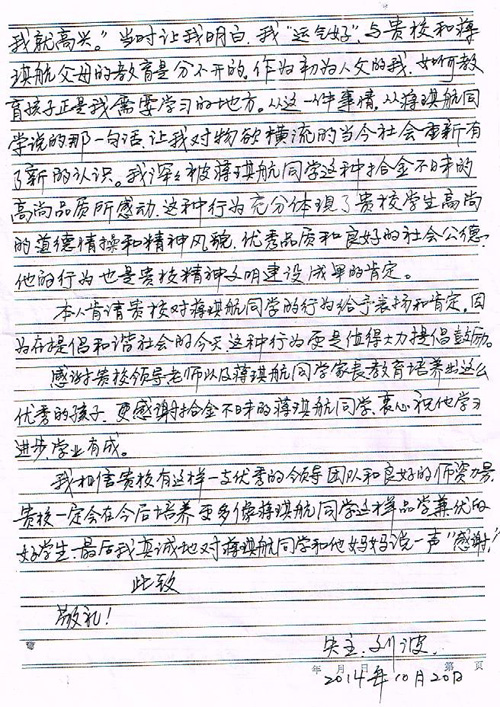 我就高兴。”当时让我明白,我“运气好”,与贵校和蒋
琪航父母的教育是分不开的。作为初为人父的我,如何教
育孩子正是我需要学习的地方。从这一件事情,从蒋琪航同
学说的那一句话,让我对物欲横流的当今社会重新有
了新的认识。我深深被蒋琪航同学这种拾金不昧的
高尚品质所感动,这种行为充分体现了贵校学生高尚
的道德情操和精神风貌,优秀品质和良好的社会公德,
他的行为也是贵校精神文明建设成果的肯定。
本人肯请贵校对蒋琪航同学的行为给予表扬和肯定,因
为在提倡和谐社会的今天,这种行为更是值得大力提倡鼓励。
感谢贵校领导老师以及蒋琪航同学家长教育培养出这么
优秀的孩子,更感谢拾金不昧的蒋琪航同学,衷心祝他学习
进步学业有成。
我相信贵校有这样一支优秀的领导团队和良好的师资力量,
贵校一定会在今后培养更多像蒋琪航同学这样品学兼优的
好学生,最后我真诚地对蒋琪航同学和他妈妈说一声“感谢,”
此致
敬礼!
失主:刘波
年 月 日 第 页
2014年10月20日